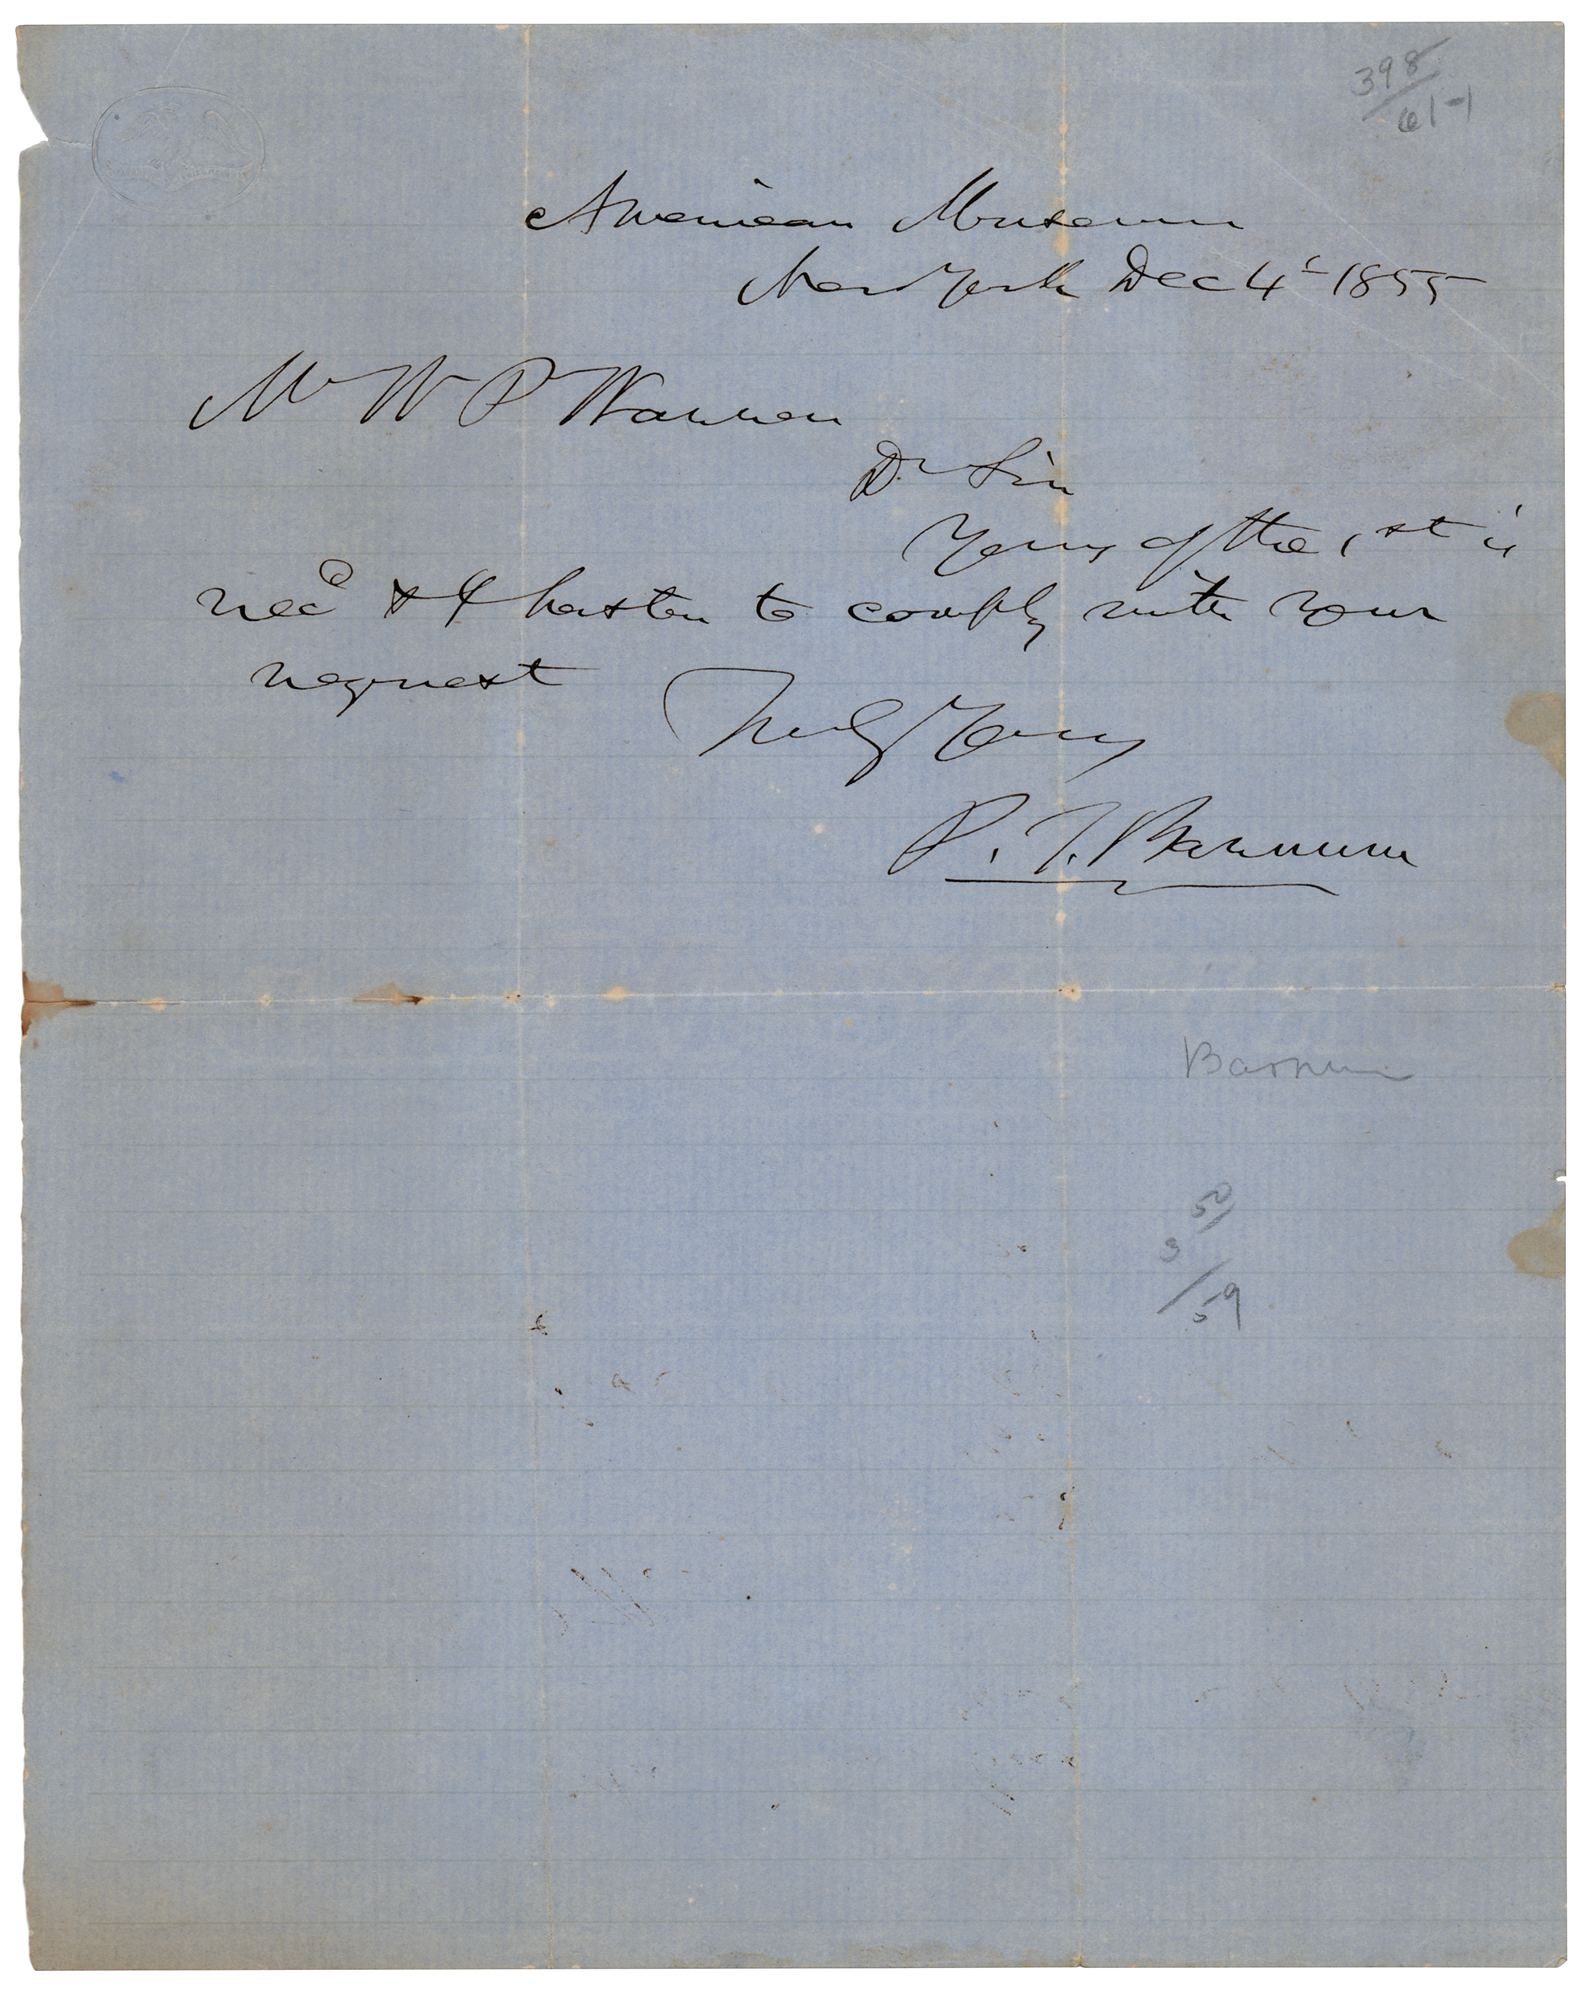 398
61-1
American Museum
New York Dec 4th 1855
Mr W P Warren
Dr Sir
Yours of the 1st is
recd & I hasten to comply with your
request
Truly Yours
P. T. Barnum
Barnum
50
3
59